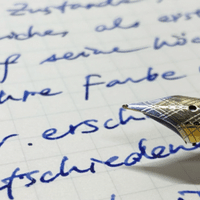 Zustande,
als erst
f seine höc
hre Farbe
r. ersch
tschieden